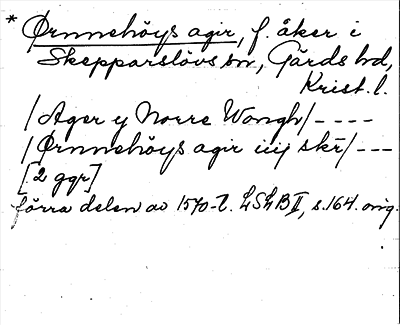 * Ørnnehöys agir, f. åker i
Skepparslövs sn, Gärds hd,
Krist. l.
/Ager y Norre Wongh/ - - - -
/Ørnnehöys agir iiij skr/ - - -
[2 ggr]
förra delen av 1570-t. LSLB II, s. 164. orig.